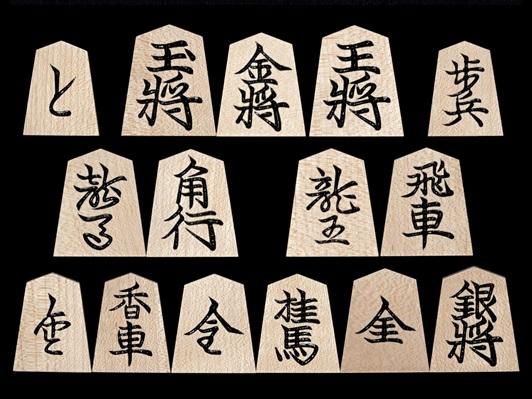 と 玉將 金將 王將 歩兵
龍馬 角行 龍王 飛車
香車 桂馬 全 銀將